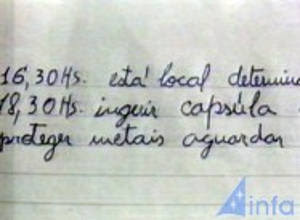 16,30Hs. está local determin
18,30Hs. ingerir capsúla
proteger metais aguardar
infa